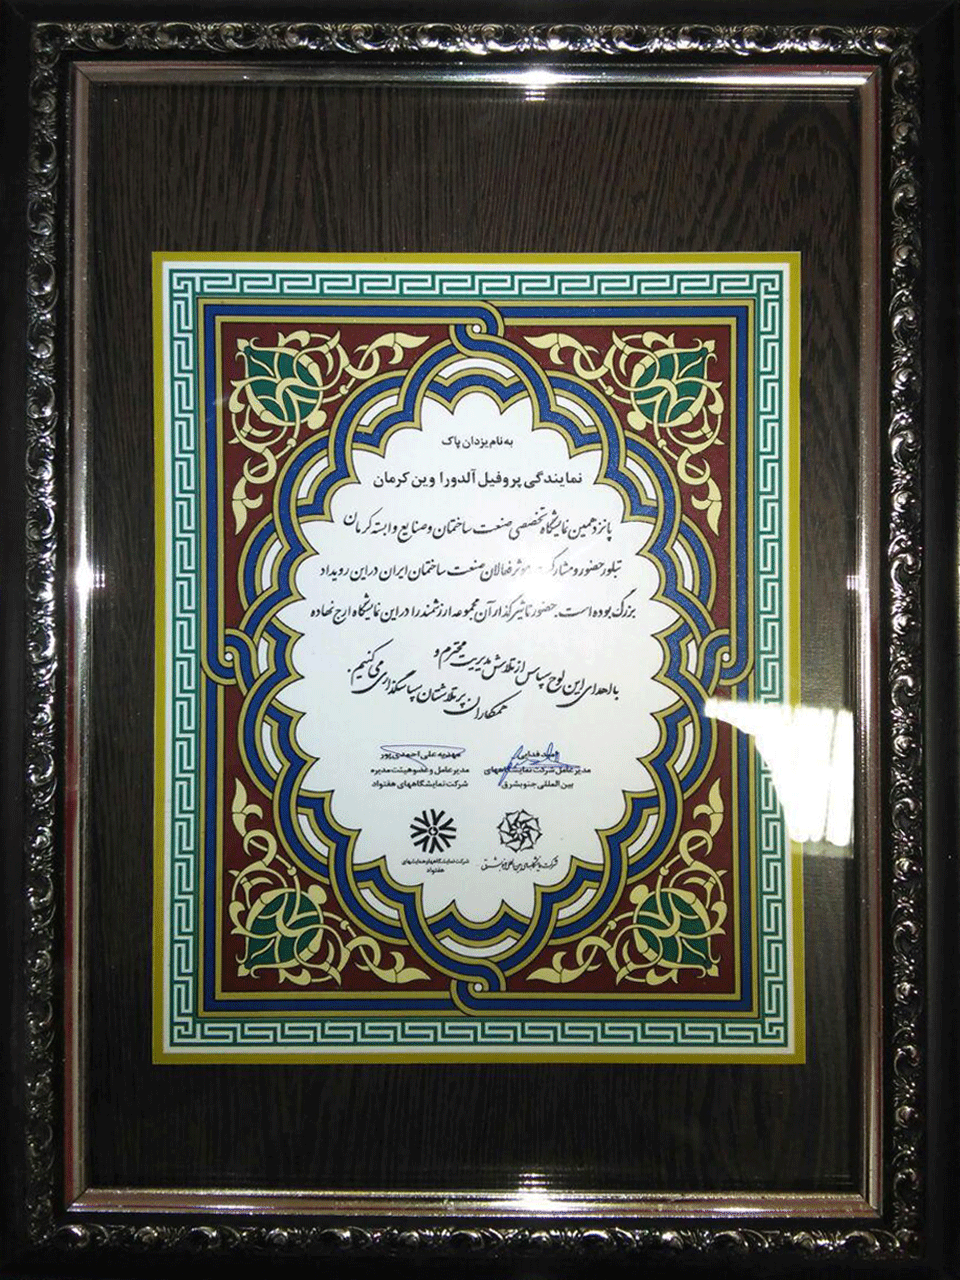 به نام یزدان پاک
نمایندگی پروفیل آلدورا وین کرمان
پانزدهمین نمایشگاه تخصصی صنعت ساختمان و صنایع وابسته کرمان
تبلور حضور و مشارکت موثر فعالان صنعت ساختمان ایران در این رویداد
بزرگ بوده است. حضور تاثیرگذار آن مجموعه ارزشمند را در این نمایشگاه ارج نهاده
با اهدای این لوح سپاس از تلاش مدیریت محترم و
همکاران پرتلاشتان سپاسگذاری می کنیم.
فدایی
مدیرعامل شرکت نمایشگاههای
بین المللی جنوبشرق
مهدیه علی احمدی پور
مدیرعامل و عضو هیئت مدیره
شرکت نمایشگاههای هفتواد
شرکت نمایشگاههای بین المللی جنوبشرق
شرکت نمایشگاهها و همایشهای
هفتواد